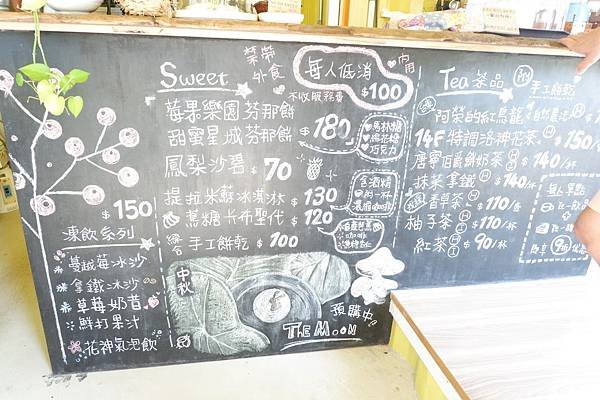 $150
凍飲系列
蔓越莓冰沙
拿鐵冰沙
草莓奶昔
鮮打果汁
花神氣泡飲
Sweet
禁帶
外食
每人低消
$100
內用
不收服務費
莓果樂園芬那餅
甜蜜星城芬那餅
$180
黑糖
巧克力
鳳梨沙碧 $70
提拉米蘇冰淇淋 $130
蕉糖卡布聖代 $120
含酒精
綜合 手工餅乾 $100
中秋
預購中!!
THE MOON
Tea 茶品
手工餅乾
阿榮的紅烏龍
14F特調洛神花茶 $150/
唐寧伯爵鮮奶茶 $140/杯
抹茶拿鐵 $140/杯
香草茶 $110/杯
柚子茶 $110/杯
紅茶 $90/杯